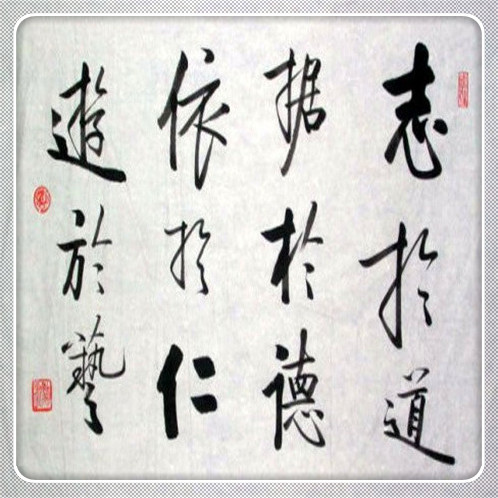 志於道
据於德
依於仁
遊於藝